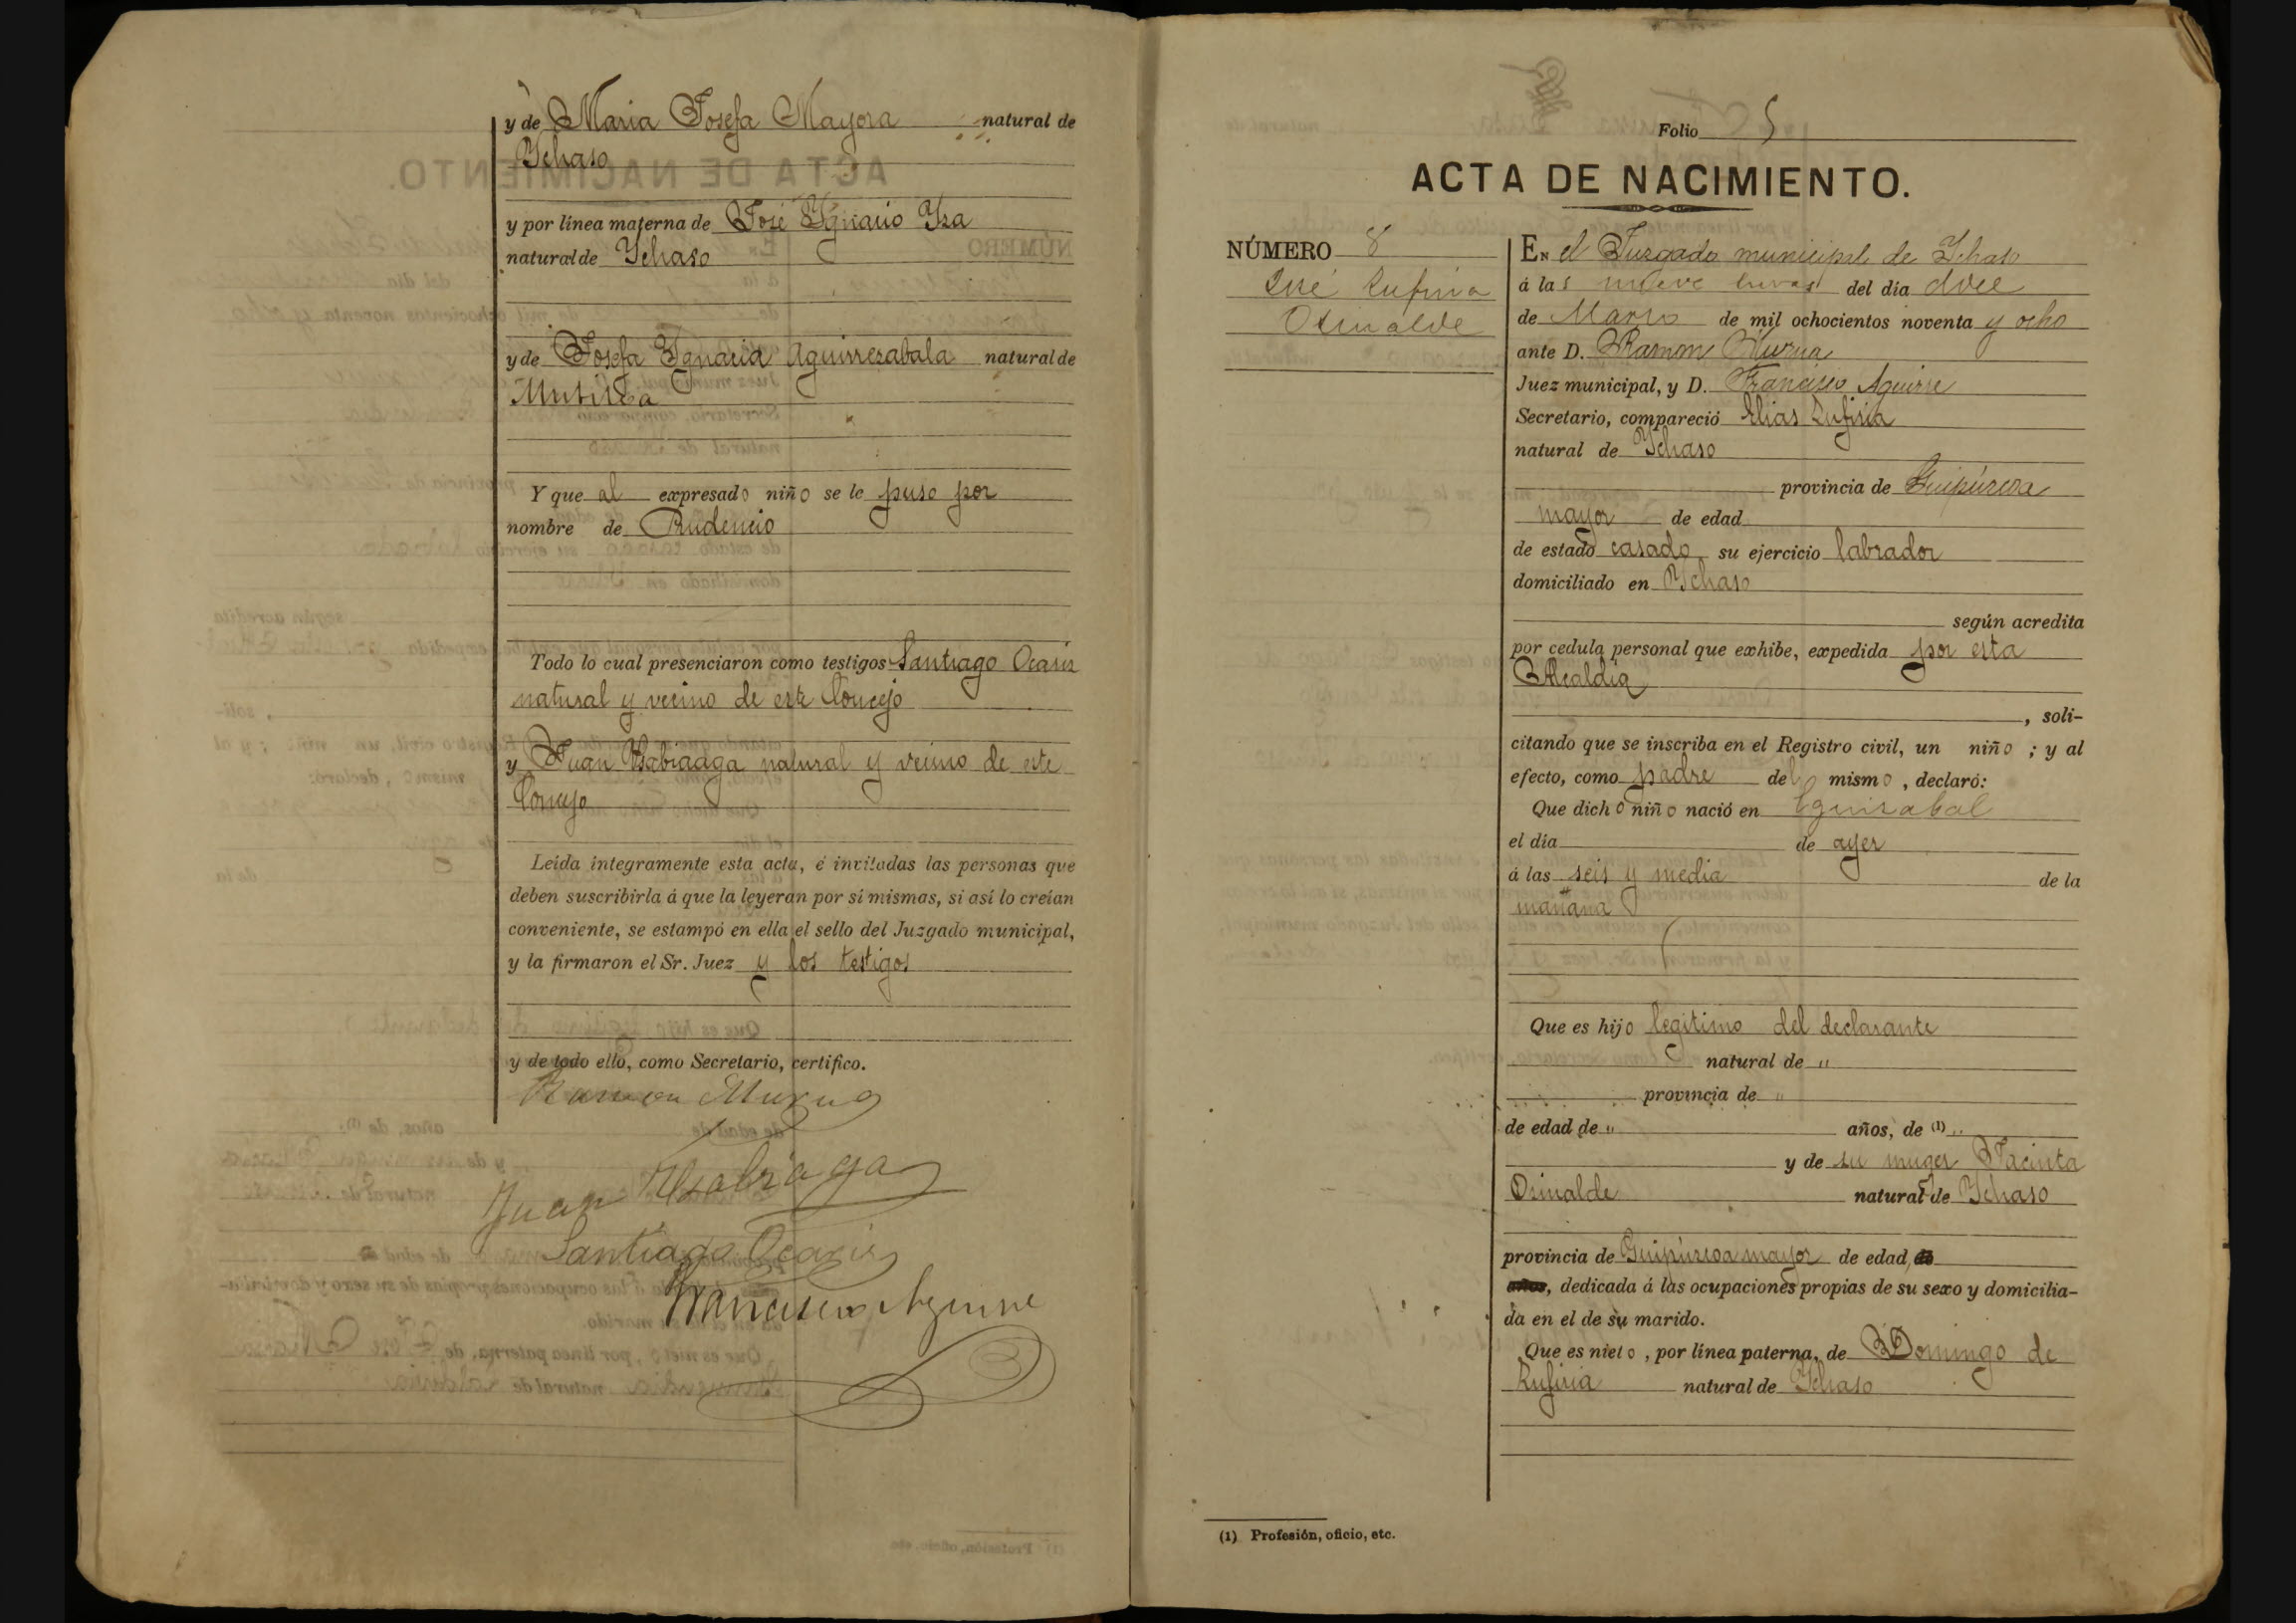 y de Maria Josefa Mayora natural de
Ychaso
y por línea materna de José Ygnacio Ysa
natural de Ychaso
y de Josefa Ygnacia Aguirrezabala natural de
Mutiloa
Y que al expresado niño se le puso por
nombre de Prudencio
Todo lo cual presenciaron como testigos Santiago Ocariz
natural y vecino de este Concejo
y Juan Usabiaaga natural y vecino de este
Concejo
Leída íntegramente esta acta, é invitadas las personas que
deben suscribirla á que la leyeran por sí mismas, si así lo creían
conveniente, se estampó en ella el sello del Juzgado municipal,
y la firmaron el Sr. Juez y los testigos
y de todo ello, como Secretario, certifico.
Ramon Murua
Juan Usabiaga
Santiago Ocariz
Francisco Aguirre
Folio 5
ACTA DE NACIMIENTO.
NÚMERO 8
José Zufiria
Ocinalde
En el Juzgado municipal de Ychaso
á las nueve horas del día doce
de Marzo de mil ochocientos noventa y ocho
ante D. Ramon Murua
Juez municipal, y D. Francisco Aguirre
Secretario, compareció Elias Zufiria
natural de Ychaso
provincia de Guipúzcoa
mayor de edad
de estado casado su ejercicio labrador
domiciliado en Ychaso
según acredita
por cedula personal que exhibe, expedida por esta
Alcaldía
, soli-
citando que se inscriba en el Registro civil, un niño ; y al
efecto, como padre del mismo , declaró:
Que dicho niño nació en Eguizabal
el día de ayer
á las seis y media de la
mañana
Que es hijo legitimo del declarante
natural de "
provincia de "
de edad de " años, de (1) "
y de su muger Jacinta
Ocinalde natural de Ychaso
provincia de Guipúzcoa mayor de edad
, dedicada á las ocupaciones propias de su sexo y domicilia-
da en el de su marido.
Que es nieto , por línea paterna, de Domingo de
Zufiria natural de Ychaso
(1) Profesión, oficio, etc.